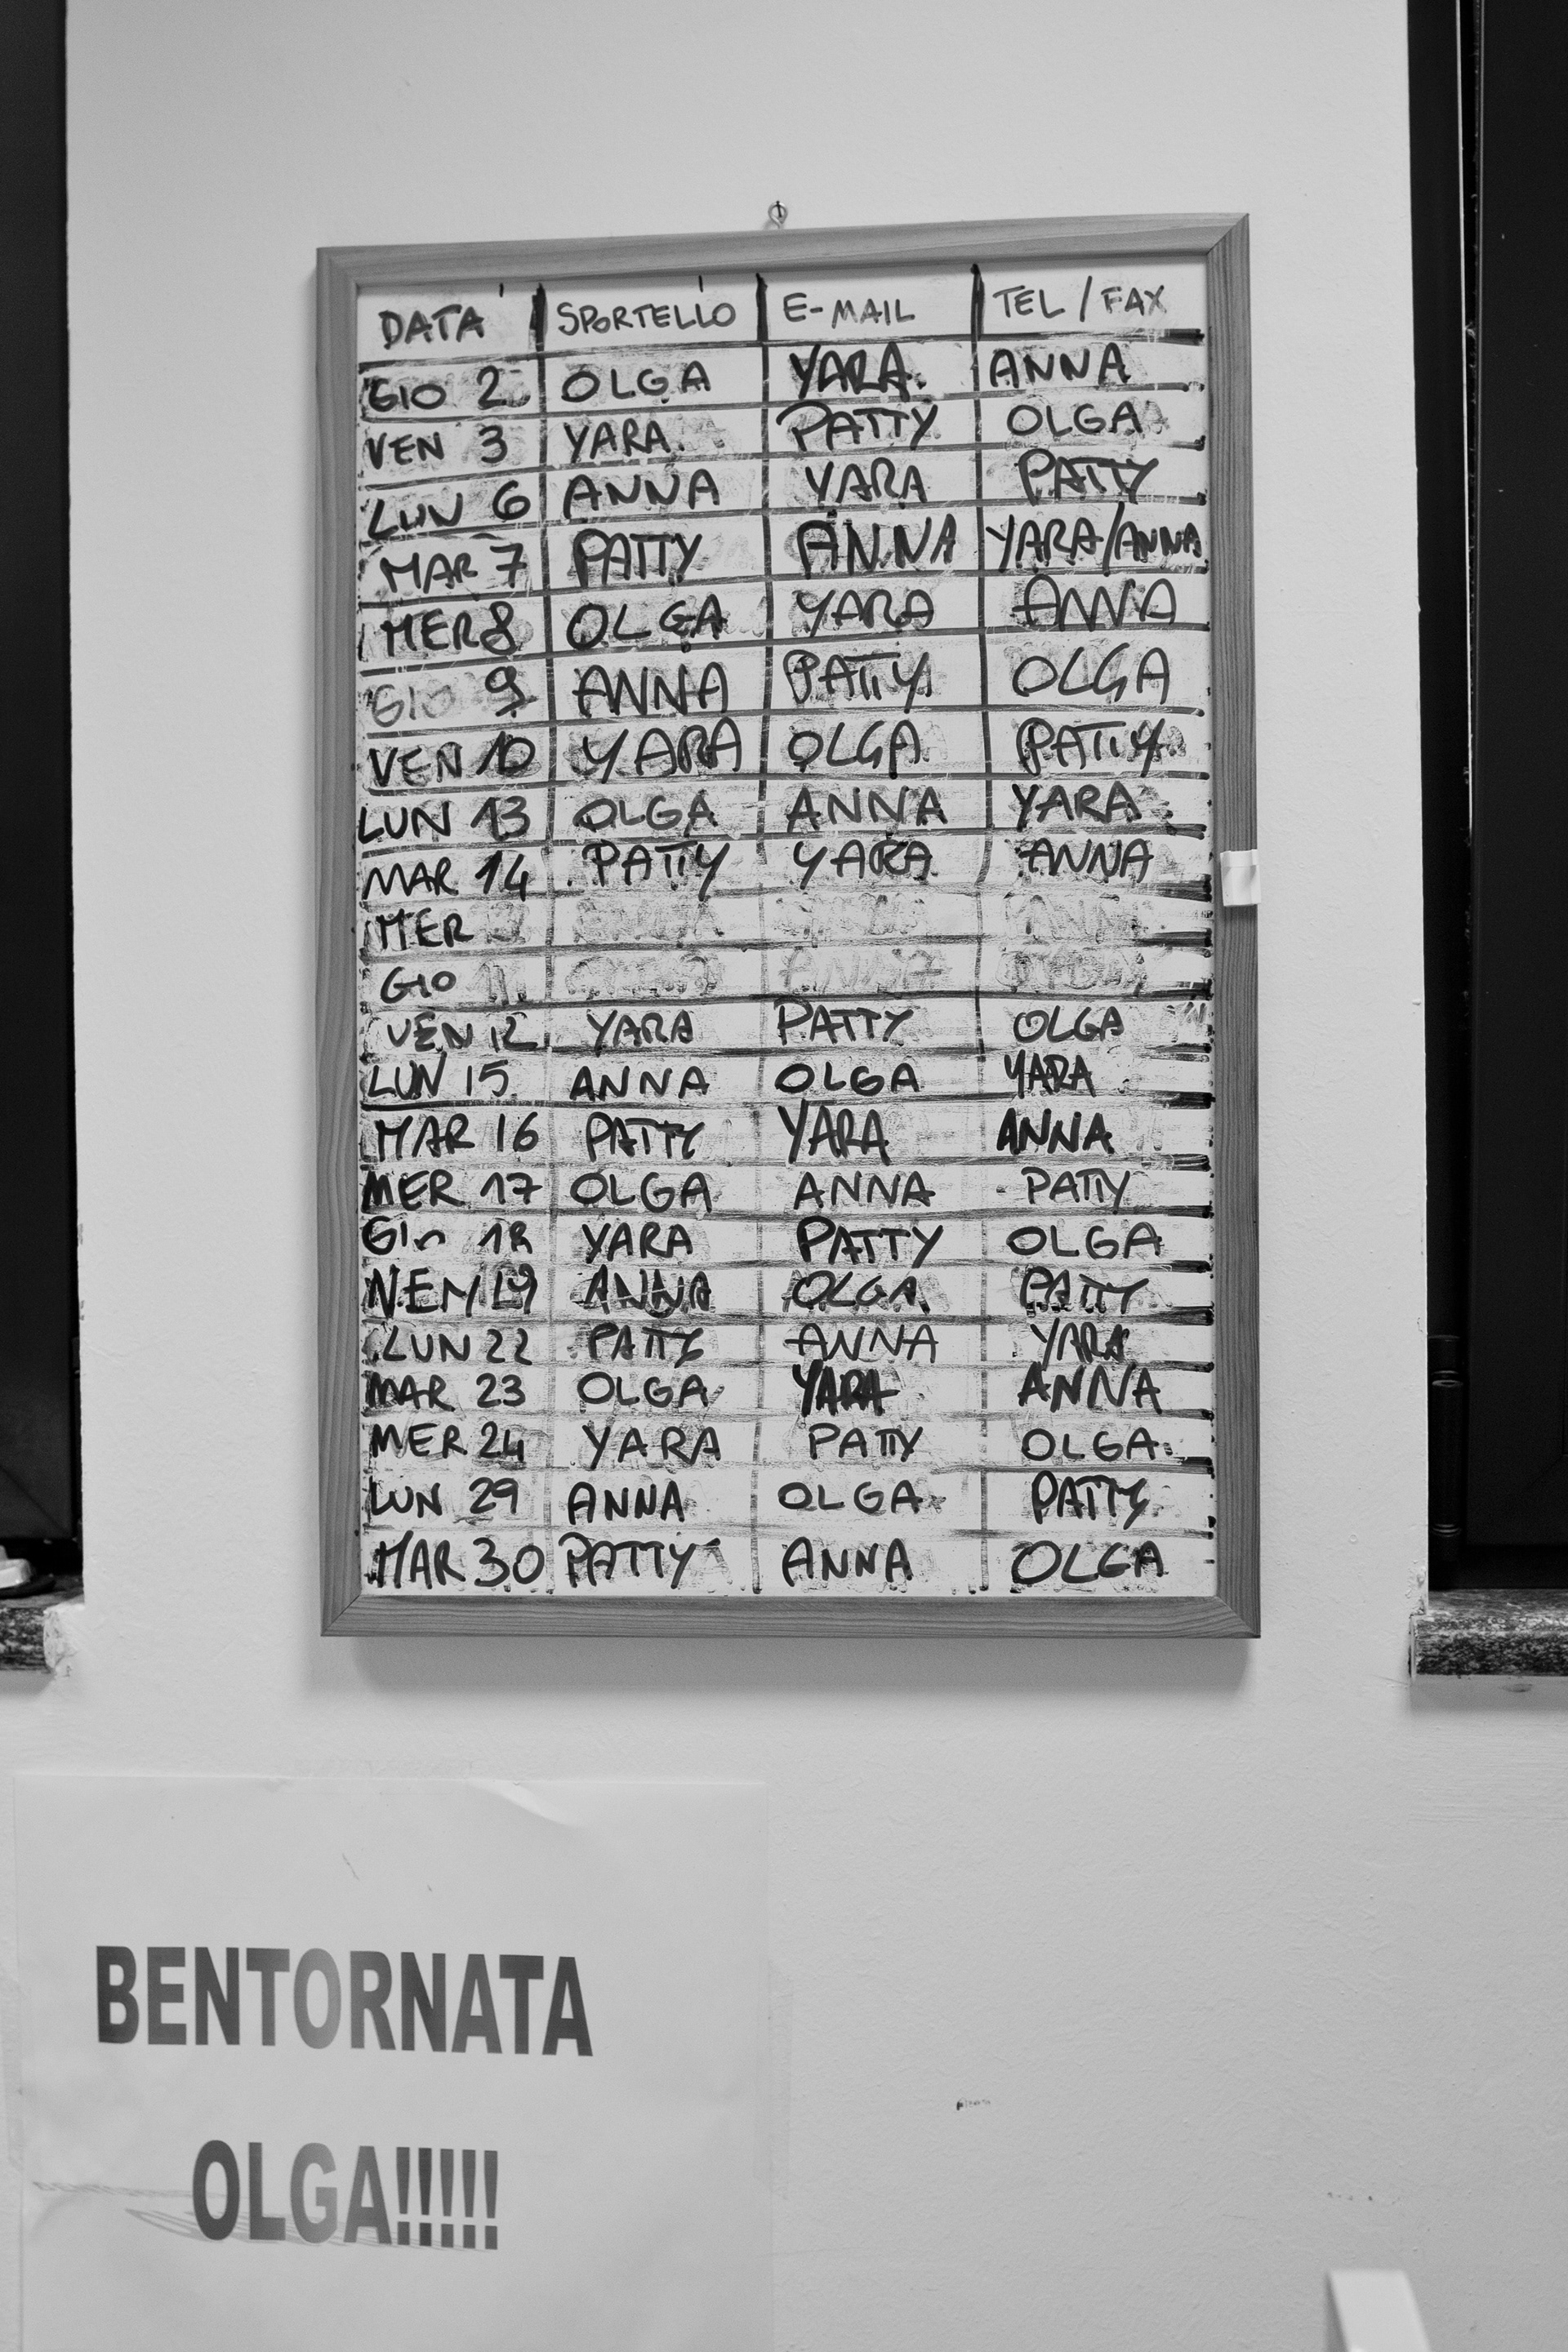 DATA SPORTELLO E-MAIL TEL / FAX
GIO 2 OLGA YARA ANNA
VEN 3 YARA PATTY OLGA
LUN 6 ANNA YARA PATTY
MAR 7 PATTY ANNA YARA/ANNA
MER 8 OLGA YARA ANNA
GIO 9 ANNA PATTY OLGA
VEN 10 YARA OLGA PATTY
LUN 13 OLGA ANNA YARA
MAR 14 PATTY YARA ANNA
MER
GIO
VEN 12 YARA PATTY OLGA
LUN 15 ANNA OLGA YARA
MAR 16 PATTY YARA ANNA
MER 17 OLGA ANNA PATTY
GIO 18 YARA PATTY OLGA
VEN 19 ANNA OLGA PATTY
LUN 22 PATTY ANNA YARA
MAR 23 OLGA YARA ANNA
MER 24 YARA PATTY OLGA
LUN 29 ANNA OLGA PATTY
MAR 30 PATTY ANNA OLGA
BENTORNATA
OLGA!!!!!